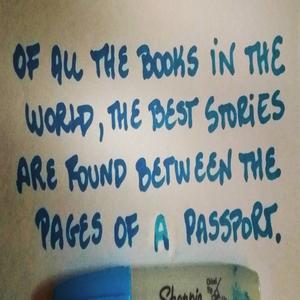 OF ALL THE BOOKS iN THE
WORLD, THE BEST STORiES
ARE FOUND BETWEEN THE
PAGES OF A PASSPORT.
Sharpie